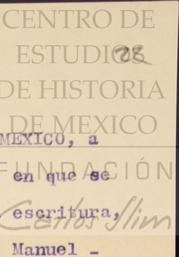 CENTRO DE
ESTUDIOS
28
DE HISTORIA
DE MEXICO
MEXICO, a
FUNDACIÓN
en que se
Carlos Slim
escritura,
Manuel -